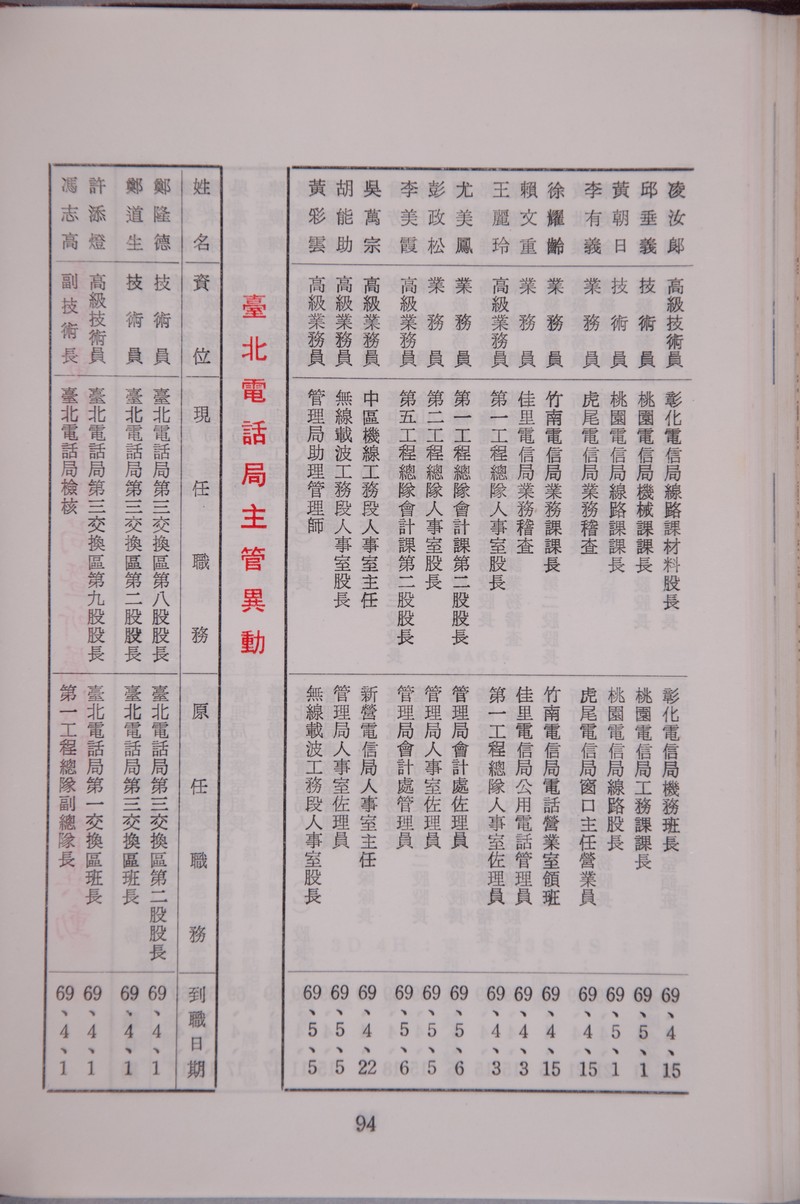 凌汝郞 高級技術員 彰化電信局線路課材料股長 彰化電信局機務班長 69、4、15
邱垂義 技術員 桃園電信局機械課課長 桃園電信局工務課課長 69、5、1
黃朝日 技術員 桃園電信局線路課課長 桃園電信局線路股長 69、5、1
李有義 業務員 虎尾電信局業務稽查 虎尾電信局窗口主任營業員 69、4、15
徐耀齡 業務員 竹南電信局業務課課長 竹南電信局電話營業室領班 69、4、15
賴文重 業務員 佳里電信局業務稽查 佳里電信局公用電話管理員 69、4、3
王麗玲 高級業務員 第一工程總隊人事室股長 第一工程總隊人事室佐理員 69、4、3
尤美鳳 業務員 第一工程總隊會計課第二股股長 管理局會計處佐理員 69、5、6
彭政松 業務員 第二工程總隊人事室股長 管理局人事室佐理員 69、5、5
李美霞 高級業務員 第五工程總隊會計課第二股股長 管理局會計處管理員 69、5、6
吳萬宗 高級業務員 中區機線工務段人事室主任 新營電信局人事室主任 69、4、22
胡能助 高級業務員 無線載波工務段人事室股長 管理局人事室佐理員 69、5、5
黃彩雲 高級業務員 管理局助理管理師 無線載波工務段人事室股長 69、5、5
臺北電話局主管異動
姓名 資位 現任職務 原任職務 到職日期
鄭隆德 技術員 臺北電話局第三交換區第八股股長 臺北電話局第三交換區第二股股長 69、4、1
鄭道生 技術員 臺北電話局第三交換區第二股股長 臺北電話局第三交換區班長 69、4、1
許添燈 高級技術員 臺北電話局第三交換區第九股股長 臺北電話局第一交換區班長 69、4、1
馮志高 副技術長 臺北電話局檢核 第一工程總隊副總隊長 69、4、1
94